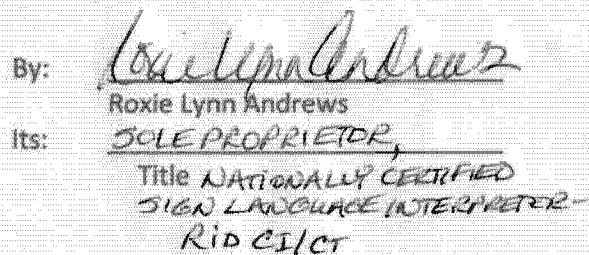 By: Roxie Lynn Andrews
Roxie Lynn Andrews
Its: SOLE PROPRIETOR,
Title NATIONALLY CERTIFIED
SIGN LANGUAGE INTERPRETER-
RID CI/CT